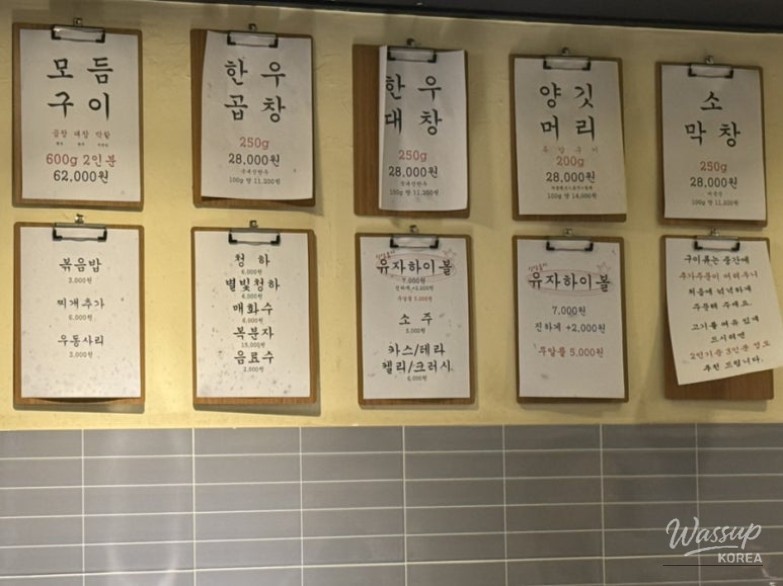 모 듬
구 이
곱창 대창 막창
600g 2인분
62,000원
한 우
곱 창
250g
28,000원
100g 당 11,200원
한 우
대 창
250g
28,000원
100g 당 11,200원
양 깃
머 리
200g
28,000원
100g 당 14,000원
소
막 창
250g
28,000원
100g 당 11,200원
볶음밥
3,000원
찌개추가
6,000원
우동사리
2,000원
청 하
별빛청하
매화수
복분자
음료수
유자하이볼
7,000원
소 주
카스/테라
켈리/크러시
유자하이볼
7,000원
진하게 +2,000원
무알콜 5,000원
구이류는 중간에
추가주문이 어려우니
처음에 넉넉하게
주문해 주세요.
고기를 여유 있게
드시려면
2인기준 3인분 정도
추천 드립니다.
Wassup
KOREA